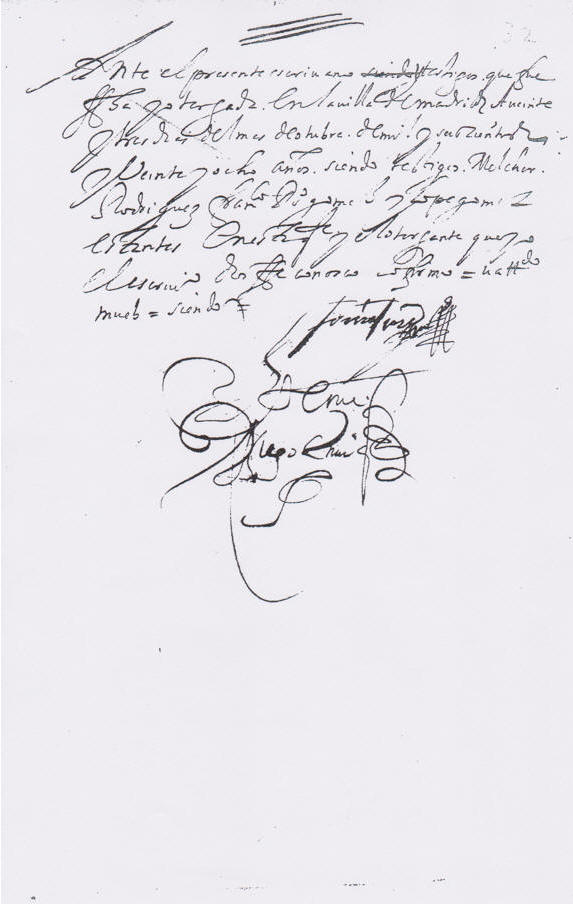 32
Ante el presente escrivano siendo testigos. que fue
ffha y otorgada. En la villa de madrid A veinte
y tres dias del mes de otubre. de mil y seiscientos
y Veinte y ocho años. siendo testigos. Melchor.
Rodriguez fran.co gomez y lope gomez
estantes En esta y el otorgante que yo
el escriv.o doy ffe conozco lo firmo =
siendo =
Diego